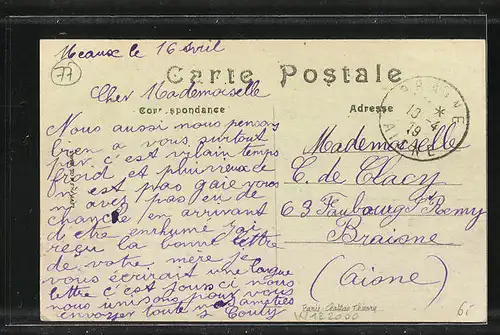 Meaux le 16 Avril
77
Carte Postale
Cher Mademoiselle
Correspondance
Adresse
BRAISNE
AISNE
Nous aussi nous pensons
bien a vous surtout
par c'est vilain temps
froid et pluvieux ce
n est pas gaie vous
n avez pas eu de
chance en arrivant
d etre enrhumé j'ai
reçu la bonne lettre
de votre mere je
vous écrirait une longue
lettre c'est jours ci nous
nous unisons pour vous
envoyer toute amitiés
Mademoiselle
C. de Clacy
63 Faubourg St Remy
Braisne
(Aisne)
Paris-Château Thierry
6.-